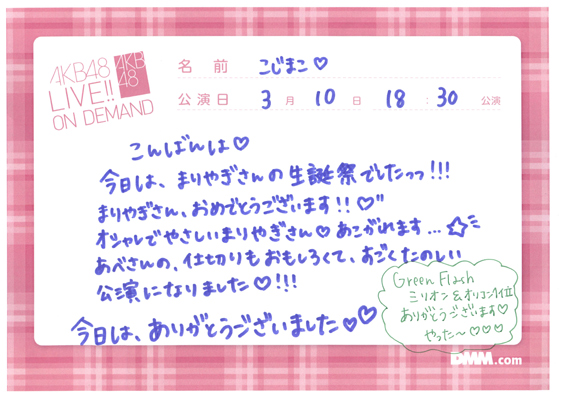 AKB48
LIVE!!
ON DEMAND
AKB
48
名 前 こじまこ♡
公演日 3月10日 18:30 公演
こんばんは♡
今日は、まりやぎさんの生誕祭でしたっっ!!!
まりやぎさん、おめでとうございます!!♡"
オシャレでやさしいまりやぎさん♡あこがれます…☆
あべさんの、仕切りもおもしろくて、すごくたのしい
公演になりました♡!!!
今日は、ありがとうございました♡♡
Green Flash
ミリオン&オリコン1位
ありがとうございます♡
やった〜♡♡♡
DMM.com